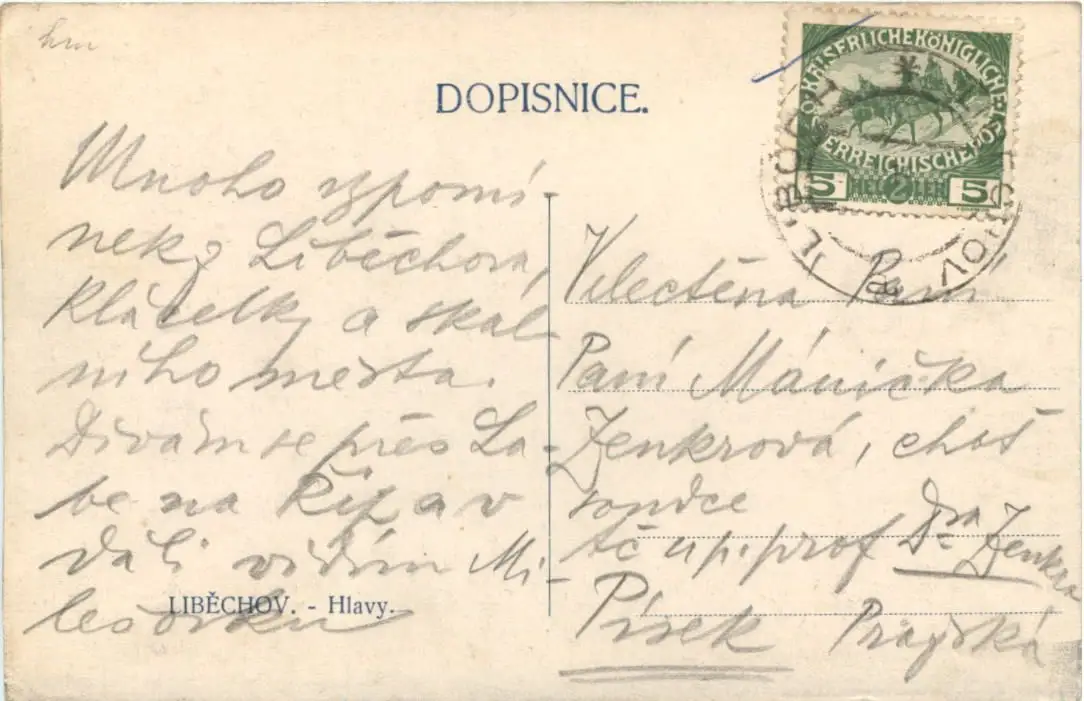 hm
DOPISNICE.
KAISERLICHEKÖNIGLICHE
ÖSTERREICHISCHEPOST
5 HELLER 5
Mnoho vzpomí-
nek z Liběchova,
Klácelky a skal-
ního města.
Dívám se přes La-
be na Říp a v
dáli vidím Mi-
lešovku
LIBĚCHOV. - Hlavy.
Velectěná Paní
Paní Mánička
Zenkrová, choť
soudce
tč u p. prof Dra Zenkra
Písek Pražská